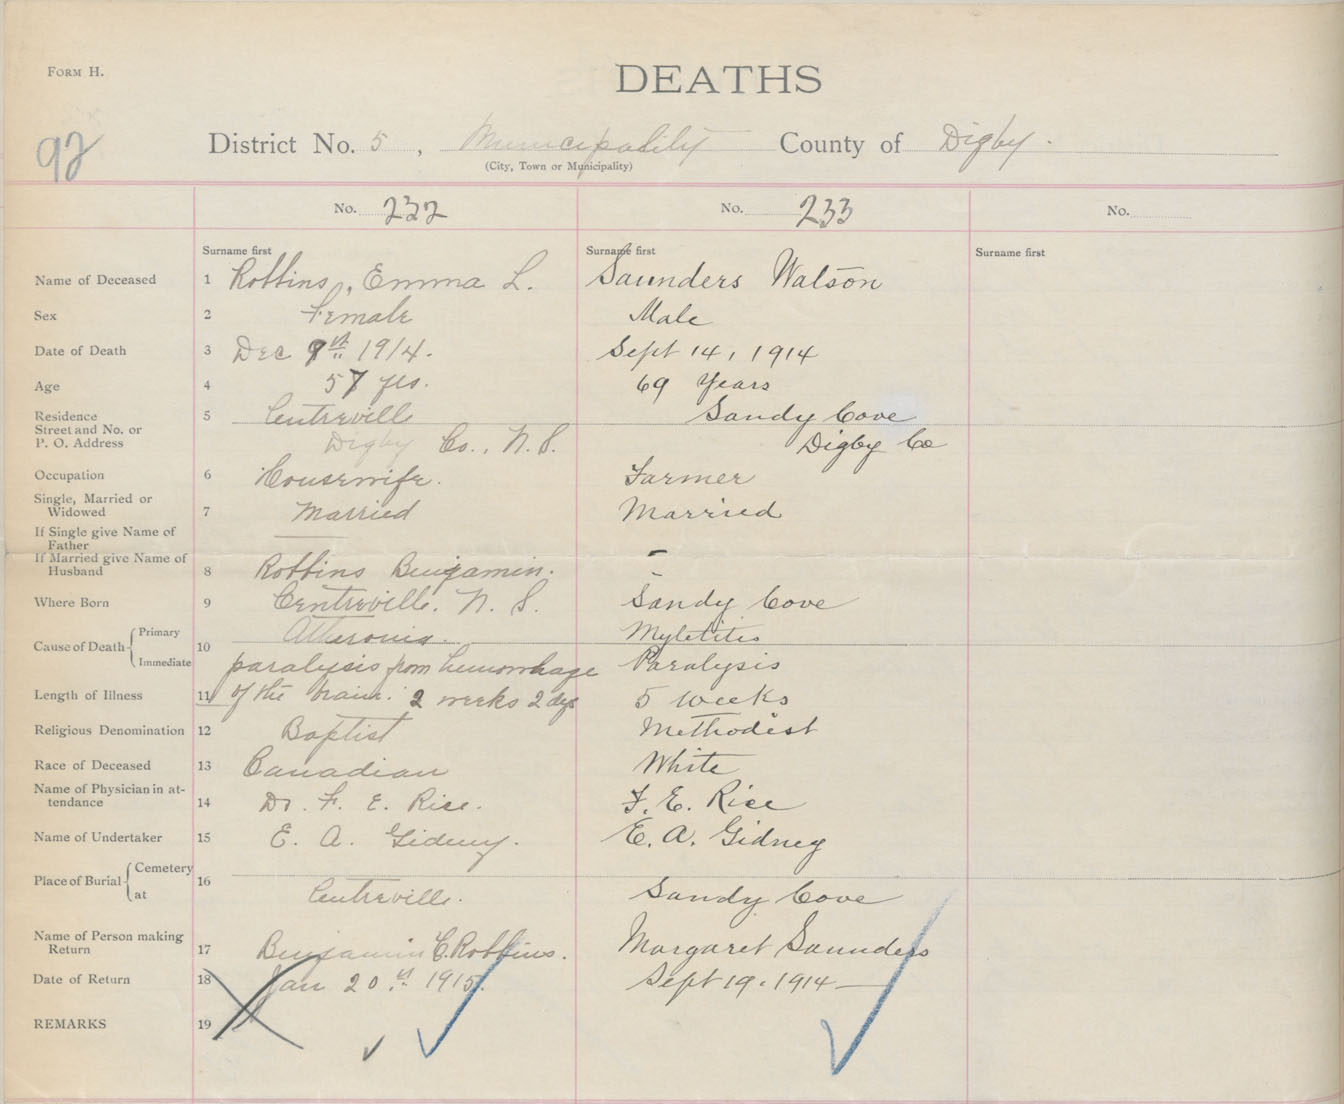 FORM H.
DEATHS
92
District No. 5, Municipality County of Digby.
(City, Town or Municipality)
No. 232 No. 233 No.
Surname first Surname first Surname first
Name of Deceased 1 Robbins, Emma L. Saunders Watson
Sex 2 Female Male
Date of Death 3 Dec 9th 1914. Sept 14, 1914
Age 4 57 yrs. 69 Years
Residence 5 Centreville Sandy Cove
Street and No. or
P. O. Address Digby Co., N. S. Digby Co
Occupation 6 Housewife. Farmer
Single, Married or
Widowed 7 Married Married
If Single give Name of
Father —
If Married give Name of -
Husband 8 Robbins Benjamin. -
Where Born 9 Centreville. N. S. Sandy Cove
Cause of Death Primary 10 Atheroma. Myletitis
Immediate paralysis from hemorrhage Paralysis
Length of Illness 11 of the brain. 2 weeks 2 dys 5 weeks
Religious Denomination 12 Baptist Methodist
Race of Deceased 13 Canadian White
Name of Physician in at-
tendance 14 Dr. F. E. Rice. F. E. Rice
Name of Undertaker 15 E. A. Gidney. E. A. Gidney
Place of Burial Cemetery 16
at Centreville. Sandy Cove
Name of Person making
Return 17 Benjamin C. Robbins. Margaret Saunders
Date of Return 18 Jan 20 1915. Sept 19. 1914
REMARKS 19